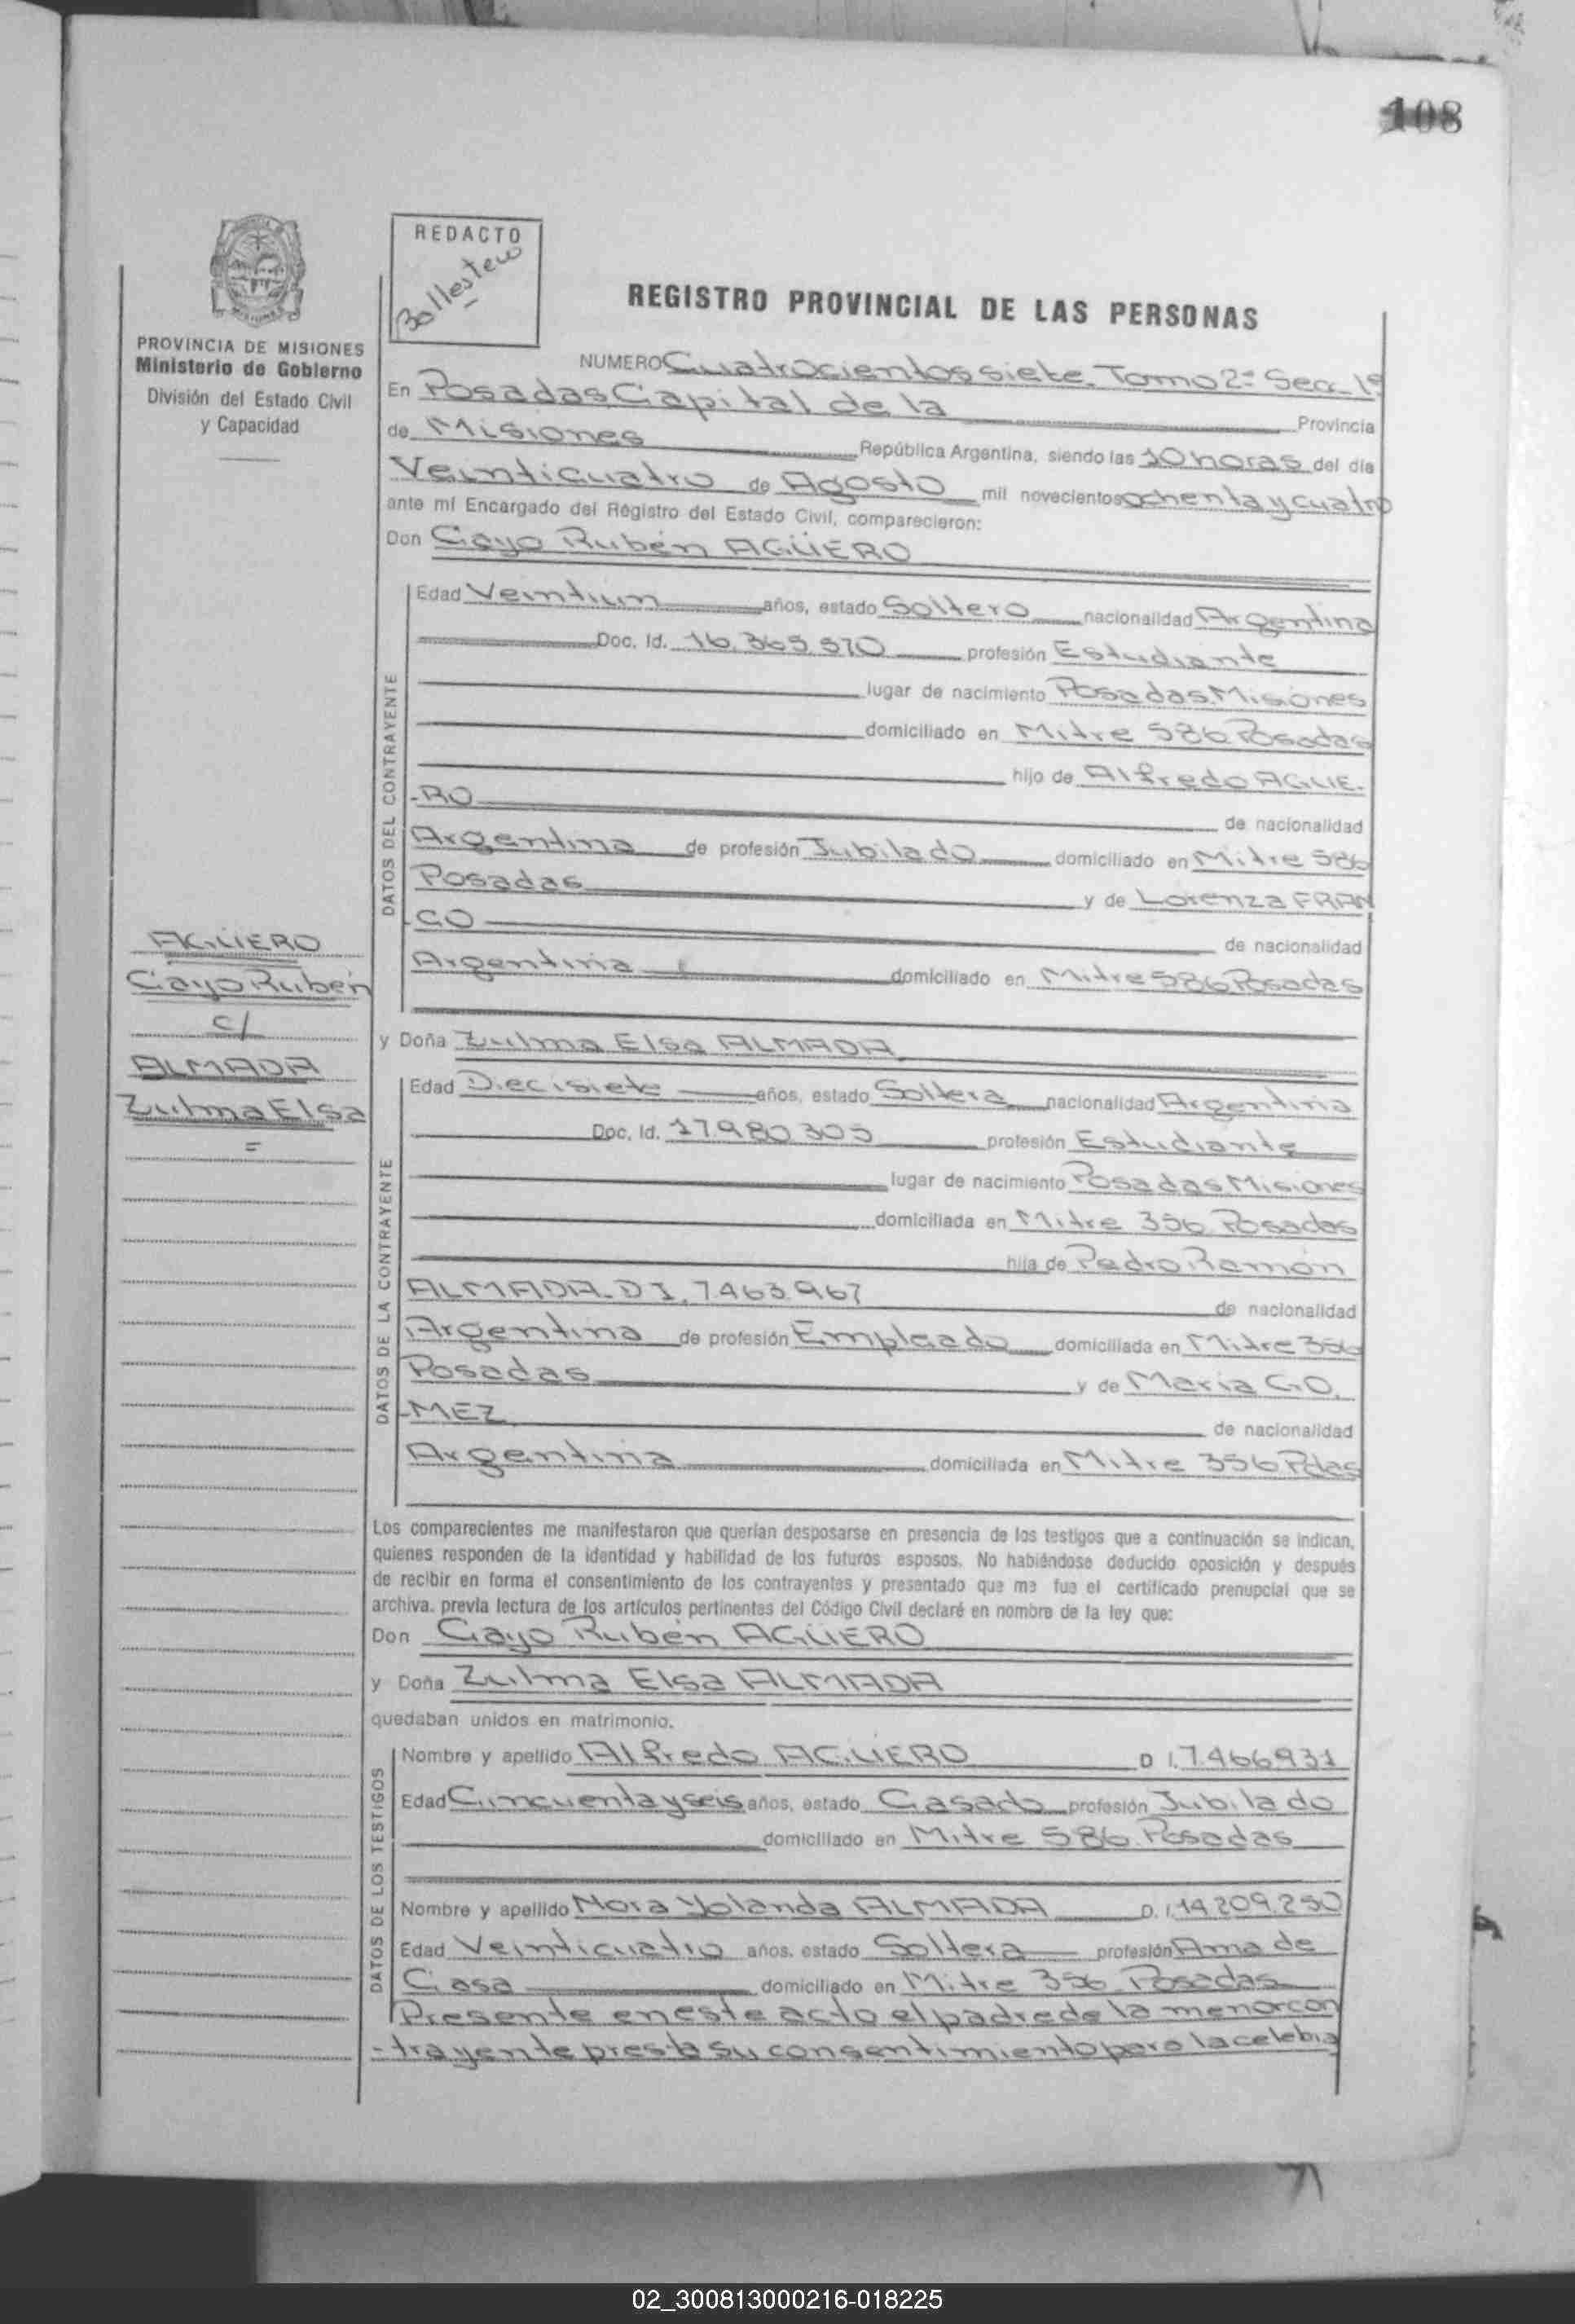 108
REDACTO
Ballestero
REGISTRO PROVINCIAL DE LAS PERSONAS
PROVINCIA DE MISIONES
Ministerio de Gobierno
División del Estado Civil
y Capacidad
NUMERO Cuatrocientos siete. Tomo 2º Secc. 1ª
En Posadas Capital de la Provincia
de Misiones República Argentina, siendo las 10 horas del día
Veinticuatro de Agosto mil novecientos ochenta y cuatro
ante mí Encargado del Registro del Estado Civil, comparecieron:
Don Gayo Rubén AGÜERO
DATOS DEL CONTRAYENTE
Edad Veintiun años, estado Soltero nacionalidad Argentina
Doc. Id. 16.365.570 profesión Estudiante
lugar de nacimiento Posadas Misiones
domiciliado en Mitre 586 Posadas
hijo de Alfredo AGUE-
-RO de nacionalidad
Argentina de profesión Jubilado domiciliado en Mitre 586
Posadas y de Lorenza FRAN
-CO de nacionalidad
Argentina domiciliado en Mitre 586 Posadas
AGÜERO
Gayo Rubén
c/
ALMADA
Zulma Elsa
=
y Doña Zulma Elsa ALMADA
DATOS DE LA CONTRAYENTE
Edad Diecisiete años, estado Soltera nacionalidad Argentina
Doc. Id. 17.980.305 profesión Estudiante
lugar de nacimiento Posadas Misiones
domiciliada en Mitre 356 Posadas
hija de Pedro Ramón
ALMADA. D I. 7.463.967 de nacionalidad
Argentina de profesión Empleado domiciliada en Mitre 356
Posadas y de Maria GO.
-MEZ de nacionalidad
Argentina domiciliada en Mitre 356 Pdas
Los comparecientes me manifestaron que querían desposarse en presencia de los testigos que a continuación se indican,
quienes responden de la identidad y habilidad de los futuros esposos. No habiéndose deducido oposición y después
de recibir en forma el consentimiento de los contrayentes y presentado que me fue el certificado prenupcial que se
archiva. previa lectura de los artículos pertinentes del Código Civil declaré en nombre de la ley que:
Don Gayo Rubén AGÜERO
y Doña Zulma Elsa ALMADA
quedaban unidos en matrimonio.
DATOS DE LOS TESTIGOS
Nombre y apellido Alfredo AGUERO D I. 7.466931
Edad Cincuenta y seis años, estado Casado profesión Jubilado
domiciliado en Mitre 586 Posadas
Nombre y apellido Nora Yolanda ALMADA D. I. 14.209.250
Edad Veinticuatro años. estado Soltera profesión Ama de
Casa domiciliado en Mitre 356 Posadas
Presente en este acto el padre de la menor con
-trayente presta su consentimiento para la celebra
02_300813000216-018225